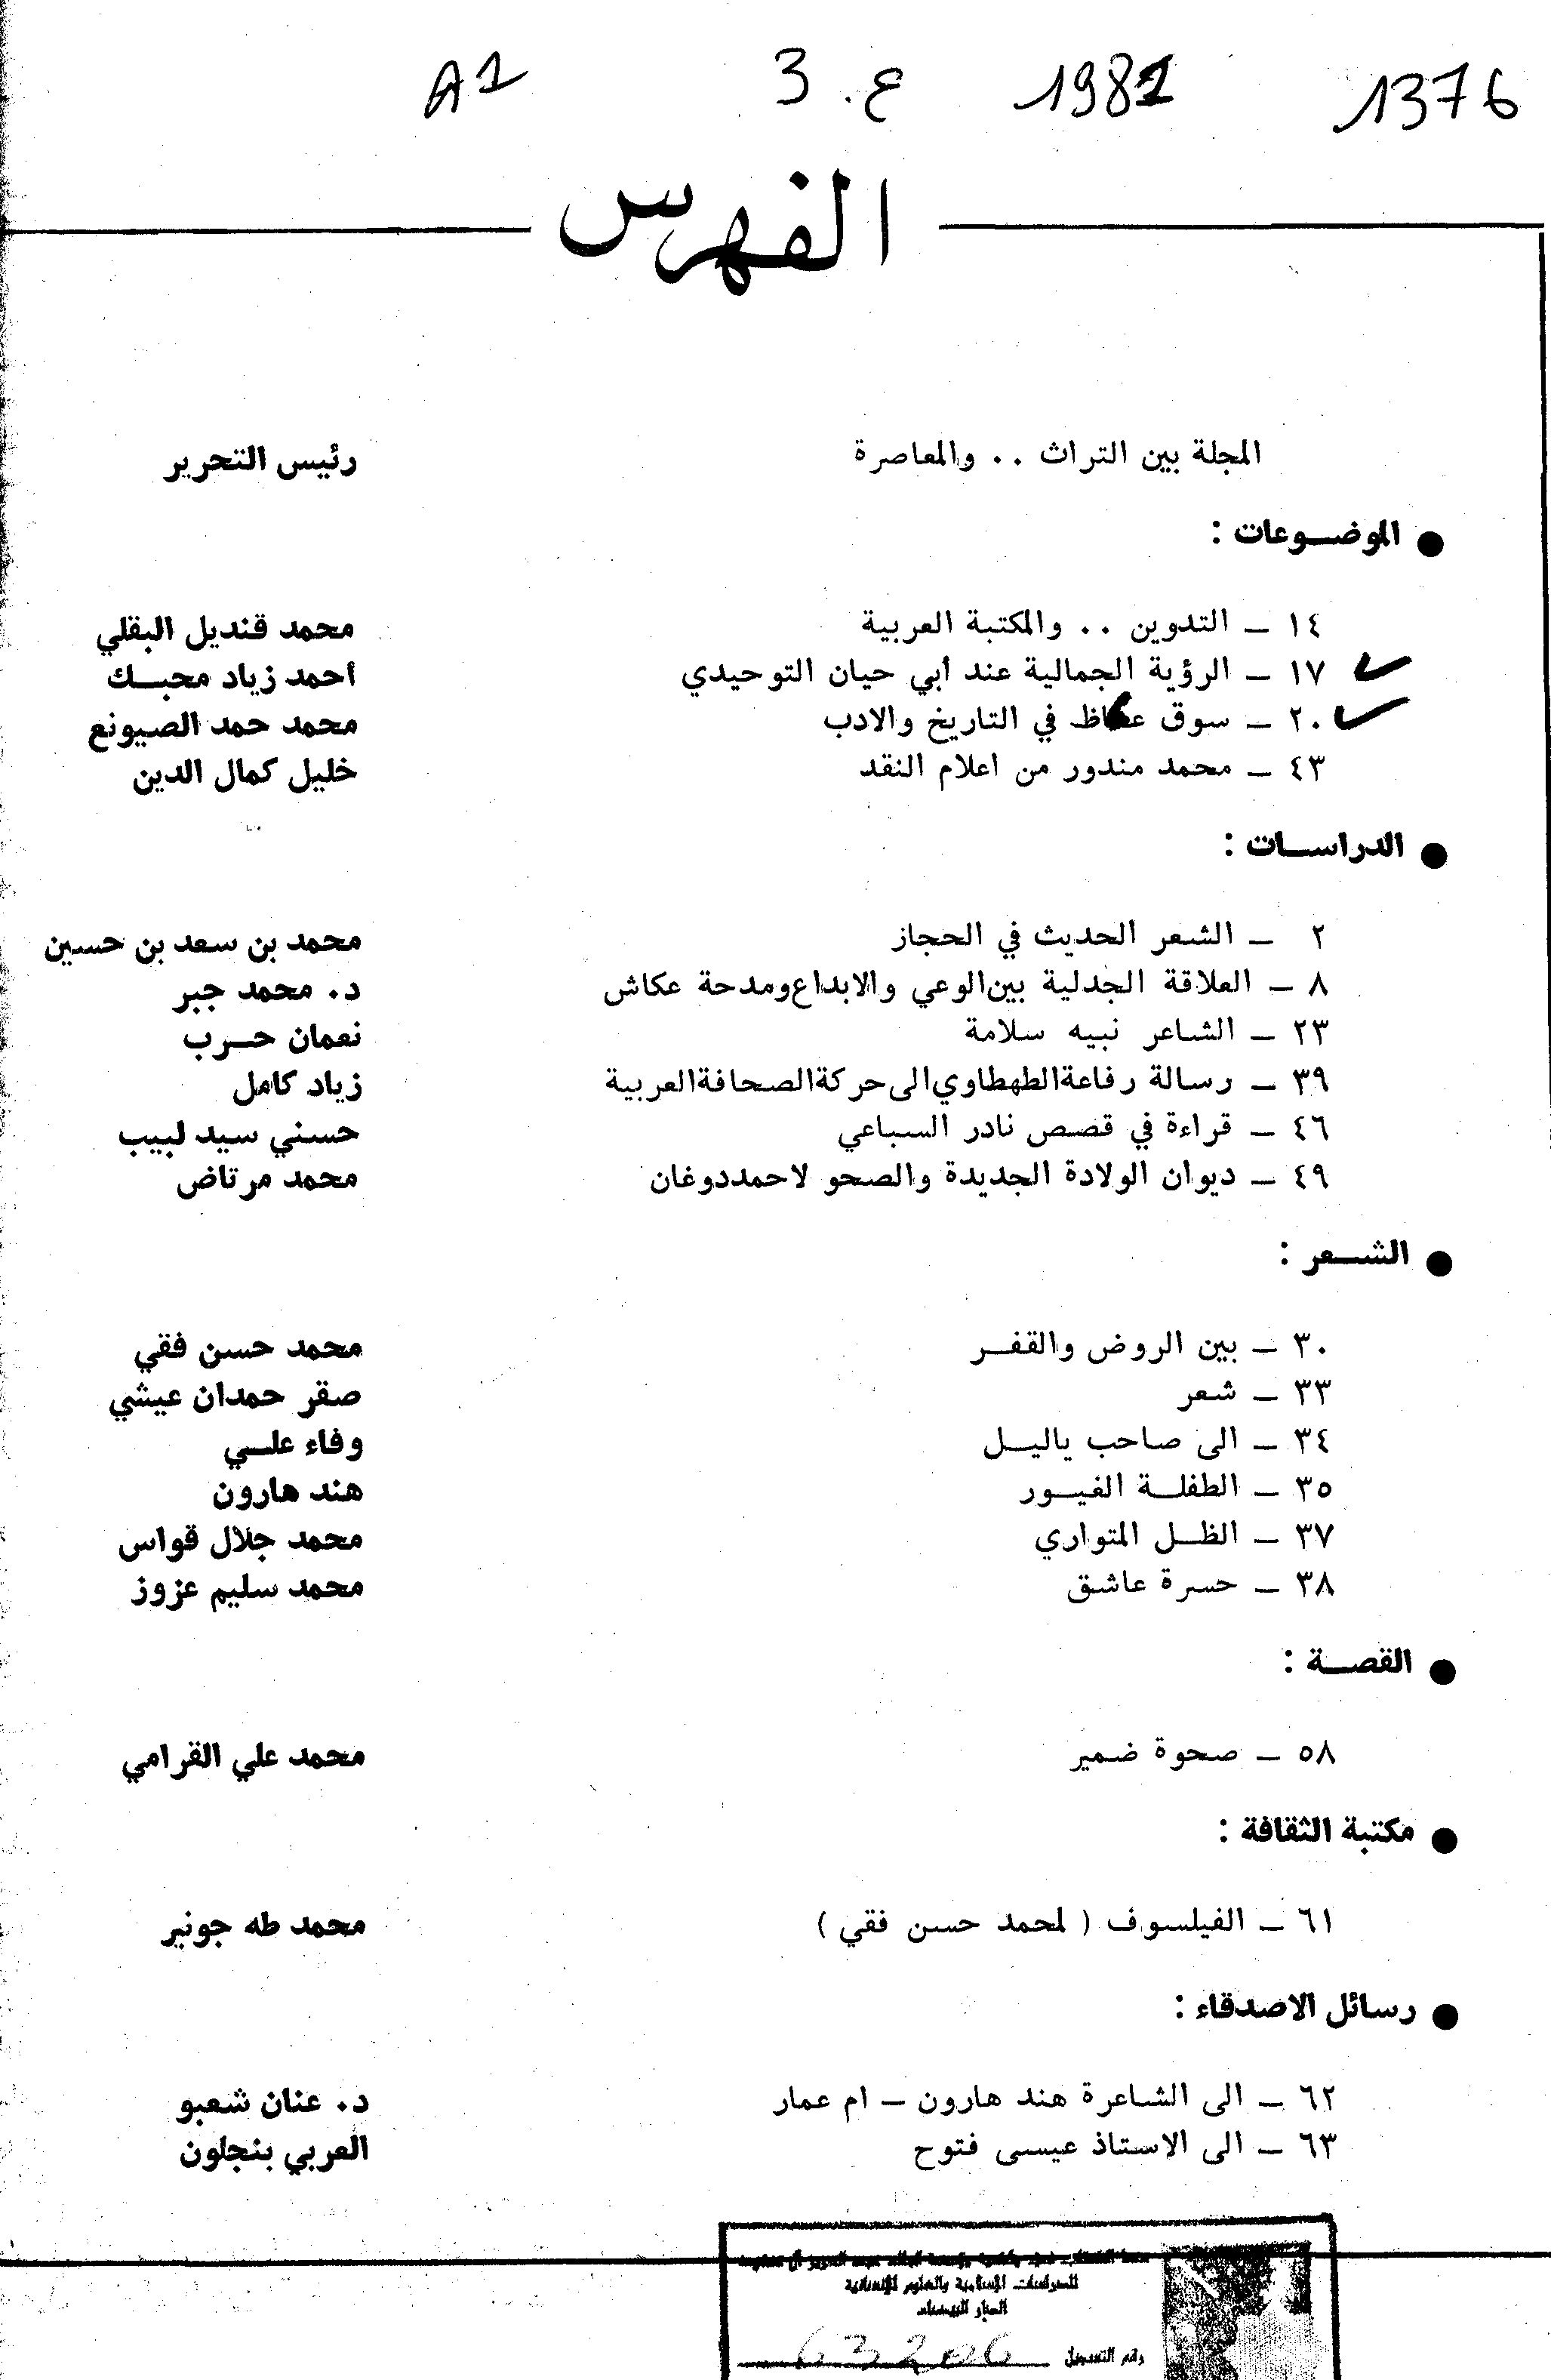 1376 1981 ع. 3 A1
الفهرس
المجلة بين التراث . . والمعاصرة رئيس التحرير
● الموضـوعات :
١٤ – التدوين . . والمكتبة العربية محمد قنديل البقلي
١٧ – الرؤية الجمالية عند أبي حيان التوحيدي احمد زياد محبـك
٢٠ – سوق عكاظ في التاريخ والادب محمد حمد الصيونع
٤٣ – محمد مندور من اعلام النقد خليل كمال الدين
● الدراسـات :
٢ – الشعر الحديث في الحجاز محمد بن سعد بن حسين
٨ – العلاقة الجدلية بين الوعي والابداع ومدحة عكاش د. محمد جبر
٢٣ – الشاعر نبيه سلامة نعمان حـرب
٣٩ – رسالة رفاعة الطهطاوي الى حركة الصحافة العربية زياد كامل
٤٦ – قراءة في قصص نادر السباعي حسني سيد لبيب
٤٩ – ديوان الولادة الجديدة والصحو لاحمد دوغان محمد مرتاض
● الشـعر :
٣٠ – بين الروض والقفـر محمد حسن فقي
٣٣ – شعر صقر حمدان عيشي
٣٤ – الى صاحب ياليـل وفاء علـي
٣٥ – الطفلـة الغيـور هند هارون
٣٧ – الظـل المتواري محمد جلال قواس
٣٨ – حسرة عاشق محمد سليم عزوز
● القصـة :
٥٨ – صحوة ضمير محمد علي القرامي
● مكتبة الثقافة :
٦١ – الفيلسوف ( لمحمد حسن فقي ) محمد طه جونير
● رسائل الاصدقاء :
٦٢ – الى الشاعرة هند هارون – ام عمار د. عنان شعبو
٦٣ – الى الاستاذ عيسى فتوح العربي بنجلون
للدراسات الإسلامية والعلوم الإنسانية
الدار البيضاء
رقم التسجيل 63206